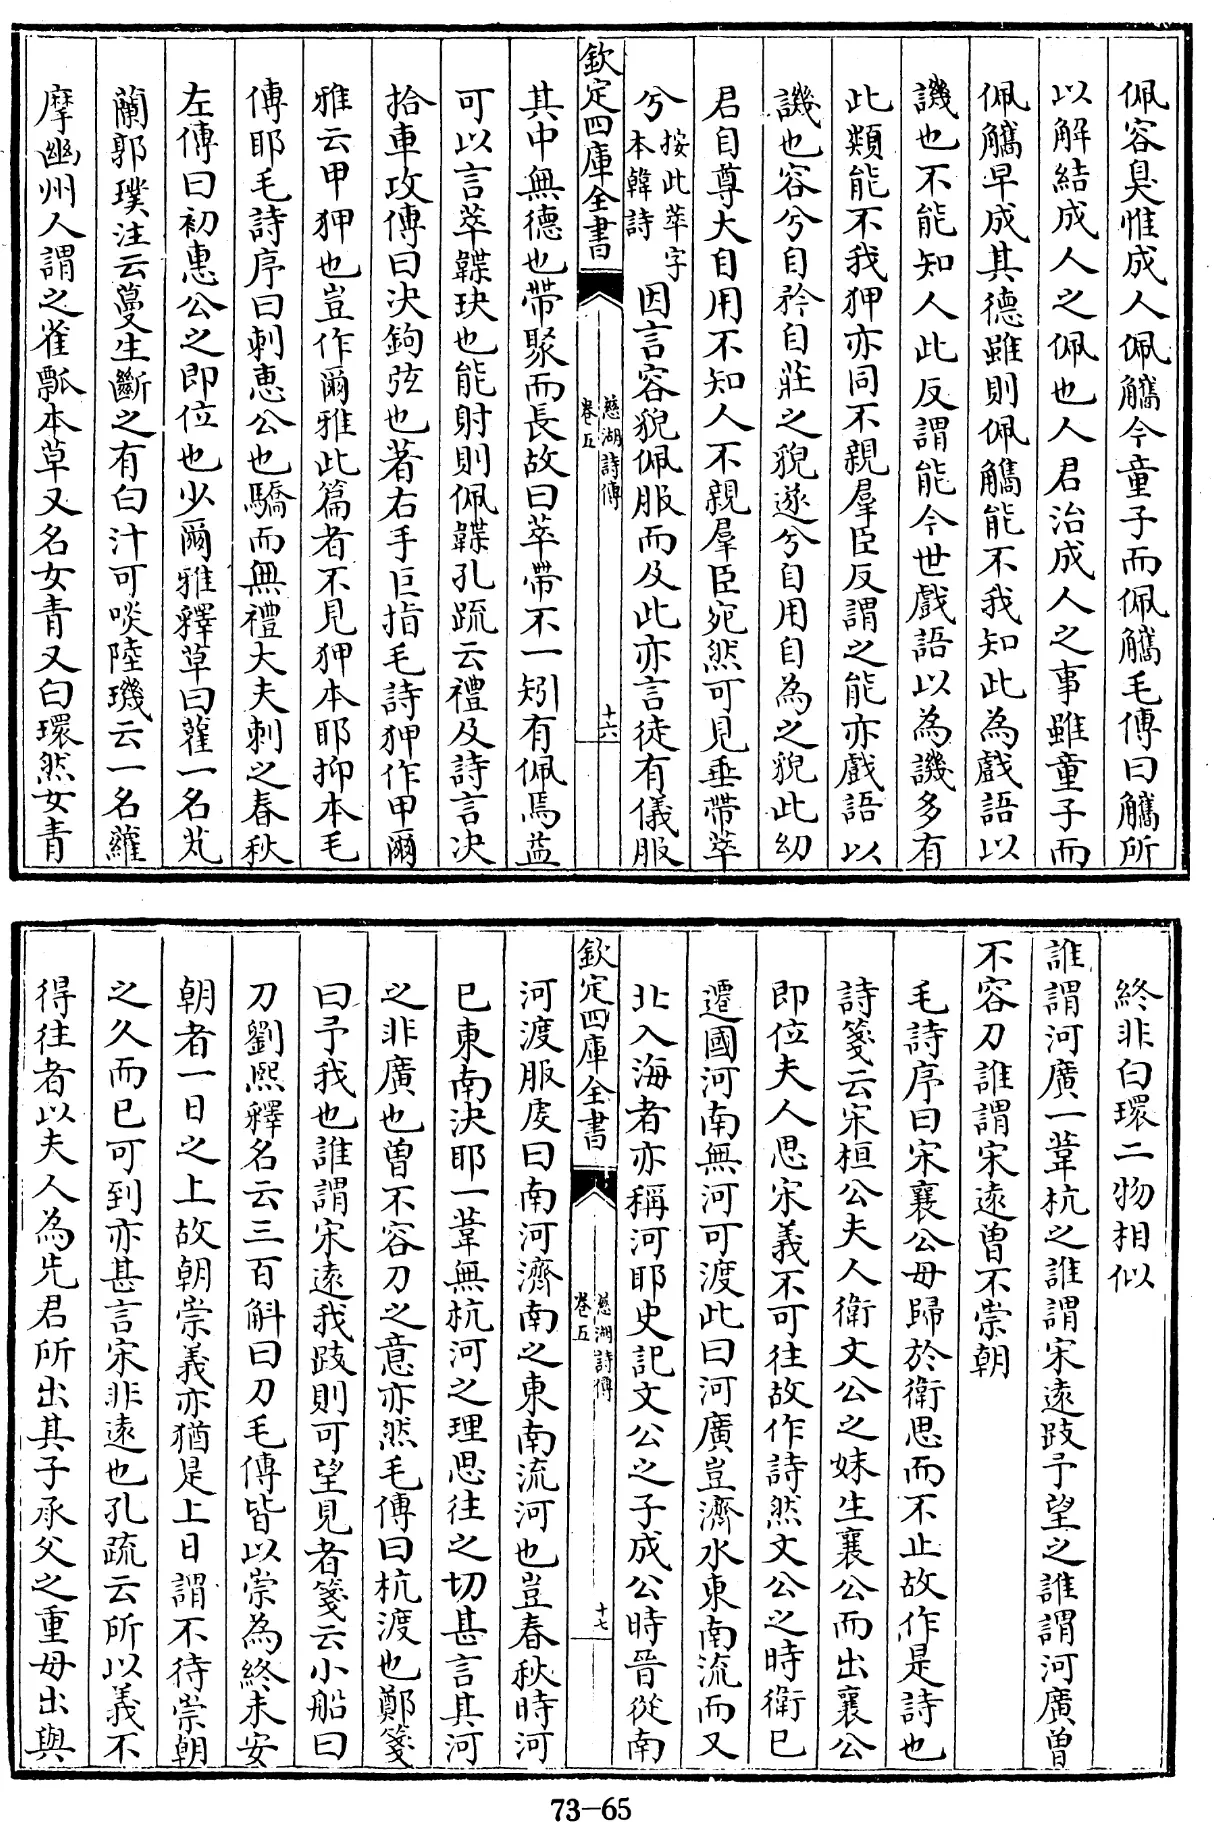 佩容臭惟成人佩觿今童子而佩觿毛傳曰觿所
以解結成人之佩也人君治成人之事雖童子而
佩觿早成其德雖則佩觿能不我知此為戲語以
譏也不能知人此反謂能今世戲語以為譏多有
此類能不我狎亦同不親羣臣反謂之能亦戲語以
譏也容兮自矜自莊之貌遂兮自用自為之貌此幼
君自尊大自用不知人不親羣臣宛然可見垂帶萃
兮按此萃字本韓詩因言容貌佩服而及此亦言徒有儀服
欽定四庫全書
慈湖詩傳
卷五
十六
其中無德也帶聚而長故曰萃帶不一矧有佩焉益
可以言萃韘玦也能射則佩韘孔疏云禮及詩言決
拾車攻傳曰決鉤弦也著右手巨指毛詩狎作甲爾
雅云甲狎也豈作爾雅此篇者不見狎本耶抑本毛
傳耶毛詩序曰刺惠公也驕而無禮大夫刺之春秋
左傳曰初惠公之即位也少爾雅釋草曰雚一名芄
蘭郭璞注云蔓生斷之有白汁可啖陸璣云一名蘿
摩幽州人謂之雀瓢本草又名女青又白環然女青
終非白環二物相似
誰謂河廣一葦杭之誰謂宋遠跂予望之誰謂河廣曾
不容刀誰謂宋遠曾不崇朝
毛詩序曰宋襄公母歸於衛思而不止故作是詩也
詩箋云宋桓公夫人衛文公之妹生襄公而出襄公
即位夫人思宋義不可往故作詩然文公之時衛已
遷國河南無河可渡此曰河廣豈濟水東南流而又
北入海者亦稱河耶史記文公之子成公時晉從南
欽定四庫全書
慈湖詩傳
卷五
十七
河渡服虔曰南河濟南之東南流河也豈春秋時河
已東南決耶一葦無杭河之理思往之切甚言其河
之非廣也曾不容刀之意亦然毛傳曰杭渡也鄭箋
曰予我也誰謂宋遠我跂則可望見者箋云小船曰
刀劉熙釋名云三百斛曰刀毛傳皆以崇為終未安
朝者一日之上故朝崇義亦猶是上日謂不待崇朝
之久而已可到亦甚言宋非遠也孔疏云所以義不
得往者以夫人為先君所出其子承父之重母出與
73-65